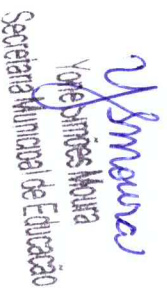 YSMoura
Yone Simões Moura
Secretaria Municipal de Educação